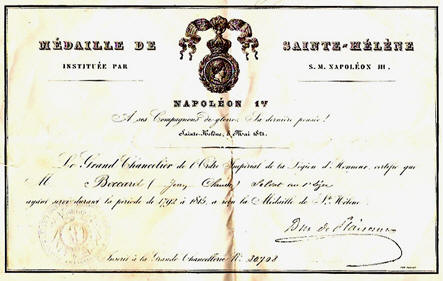 MÉDAILLE DE SAINTE-HÉLÈNE
INSTITUÉE PAR S. M. NAPOLÉON III.
NAPOLÉON 1er
A ses Compagnons de gloire, Sa dernière pensée!
Sainte-Hélène, 5 Mai 1821.
Le Grand Chancelier de l'Ordre Impérial de la Légion d'Honneur, certifie que
M Boccard (Jean Claude) Soldat au
ayant servi durant la période de 1792 à 1815, a reçu la Médaille de Ste Hélène.
Duc de Plaisance
Inscrit à la Grande Chancellerie N°